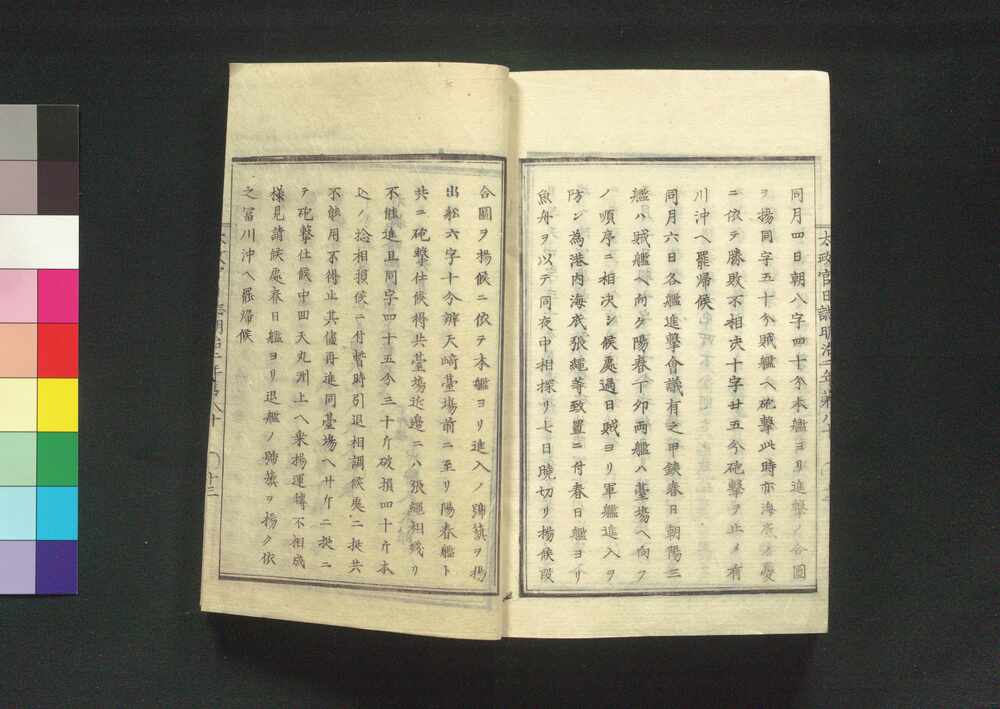 同月四日朝八字四十分本艦ヨリ進撃ノ合圖
ヲ揚同字五十分賊艦ヘ砲撃此時亦海底ヲ憂
ニ依テ勝敗不相决十字廿五分砲撃ヲ止メ有
川沖ヘ罷帰候
同月六日各艦進撃會議有之甲鐵春日朝陽三
艦ハ賊艦ヘ向ケ陽春丁卯両艦ハ䑓場ヘ向フ
ノ順序ニ相决シ候處過日賊ヨリ軍艦進入ヲ
防ン為港内海底張縄等致置ニ付春日艦ヨリ
魚舟ヲ以テ同夜中相探リ七日曉切リ揚候段
太政官日誌明治二年第八十
合圖ヲ揚候ニ依テ本艦ヨリ進入ノ號旗ヲ揚
出舩六字十分辨天﨑䑓場前ニ至リ陽春艦ト
共ニ砲撃仕候得共䑓塲近邊ニハ張縄相残リ
不能進且同字四十五分三十斤破損四十斤本
込ノ捻相損候ニ付暫時引退相調候處ニ挺共
不能用不得止其儘再進同䑓場ヘ廿斤二挺ニ
テ砲撃仕候中回天丸洲上ヘ乗揚運轉不相成
様見請候處春日艦ヨリ退艦ノ號旗ヲ揚ク依
之冨川沖ヘ罷帰候
十三